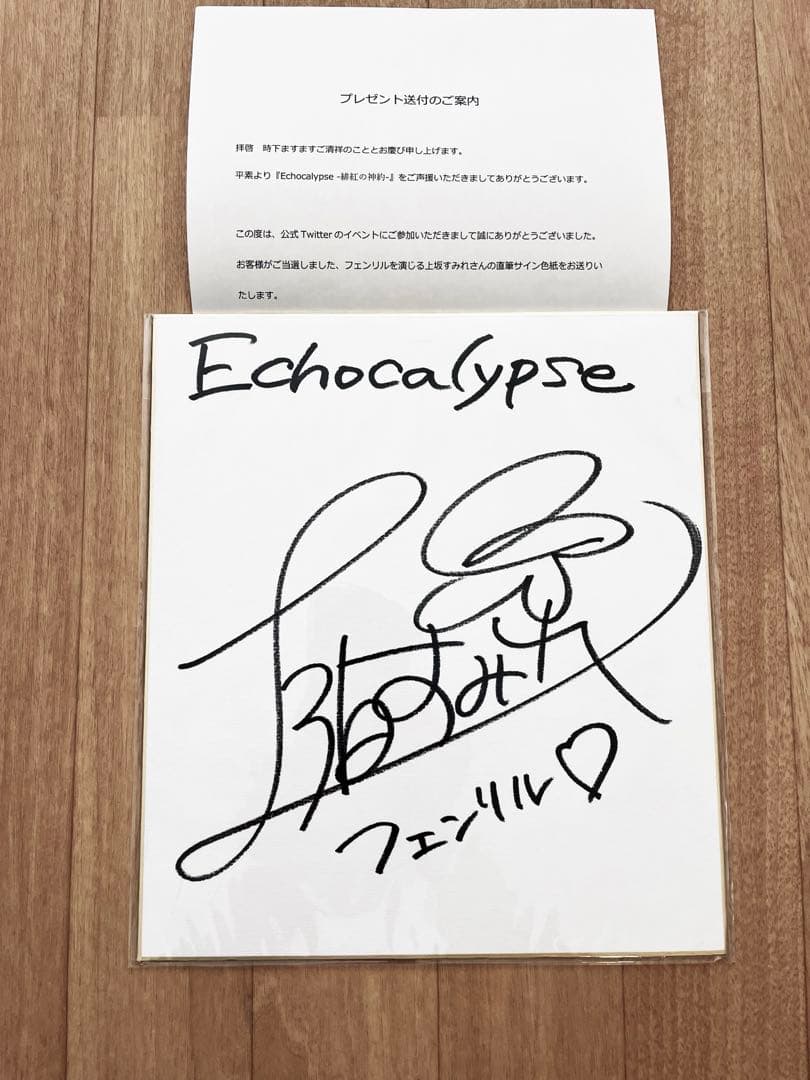 プレゼント送付のご案内
拝啓　時下ますますご清祥のこととお慶び申し上げます。
平素より『Echocalypse -緋紅の神約-』をご声援いただきましてありがとうございます。
この度は、公式 Twitter のイベントにご参加いただきまして誠にありがとうございました。
お客様がご当選しました、フェンリルを演じる上坂すみれさんの直筆サイン色紙をお送りい
たします。
Echocalypse
上坂すみれ
フェンリル♡